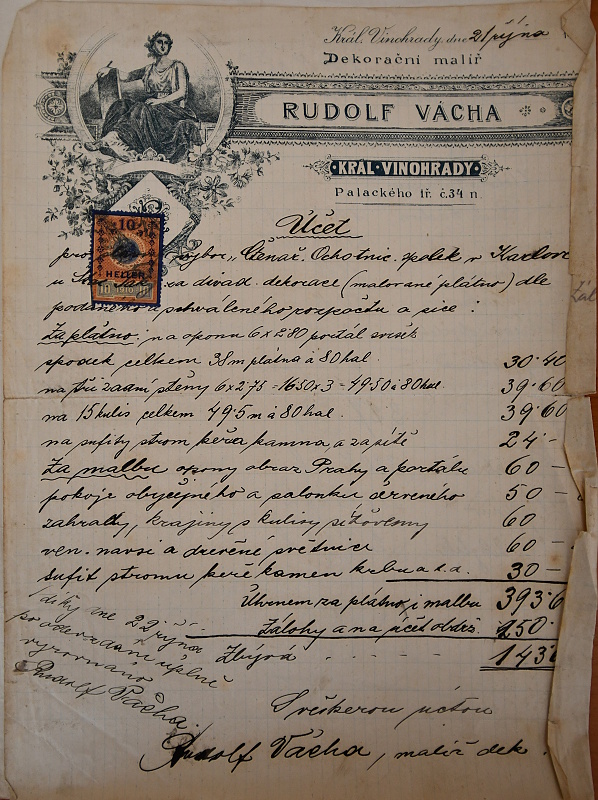 Král. Vinohrady, dne 21 října
Dekorační malíř
RUDOLF VÁCHA
KRÁL. VINOHRADY
Palackého tř. č. 34 n.
Účet
10
HELLER
1910
pro výbor „Čtenář. Ochotnic. spolek v Karlově
u za divad. dekorace (malované plátno) dle
podaného a schváleného rozpočtu a sice:
Za plátno: na oponu 6 x 280 portál svisét
spodek celkem 38 m plátna à 80 hal. 30·40
na tři zadní stěny 6 x 2·75 = 1650 x 3 = 49·50 à 80 hal. 39·60
na 15 kulis celkem 49·5 m à 80 hal. 39·60
na sufity strom keře kamna a 24·-
Za malbu opony obraz Prahy a portálu 60 -
pokoje obyčejného a salonku červeného 50 -
zahrady, krajiny s kulisy síťovemy 60
ven. navsi a dřevěné světnice 60 -
sufit stromu keře kamen krbu a t. d. 30 -
Úhrnem za plátno i malbu 393·6
Zálohy a na účet obdrž. 250·
Zbývá 143·6
díky dne 22 října
po odevzdání úplně
vyrovnáno
Rudolf Vácha
S veškerou úctou
Rudolf Vácha, malíř dek.